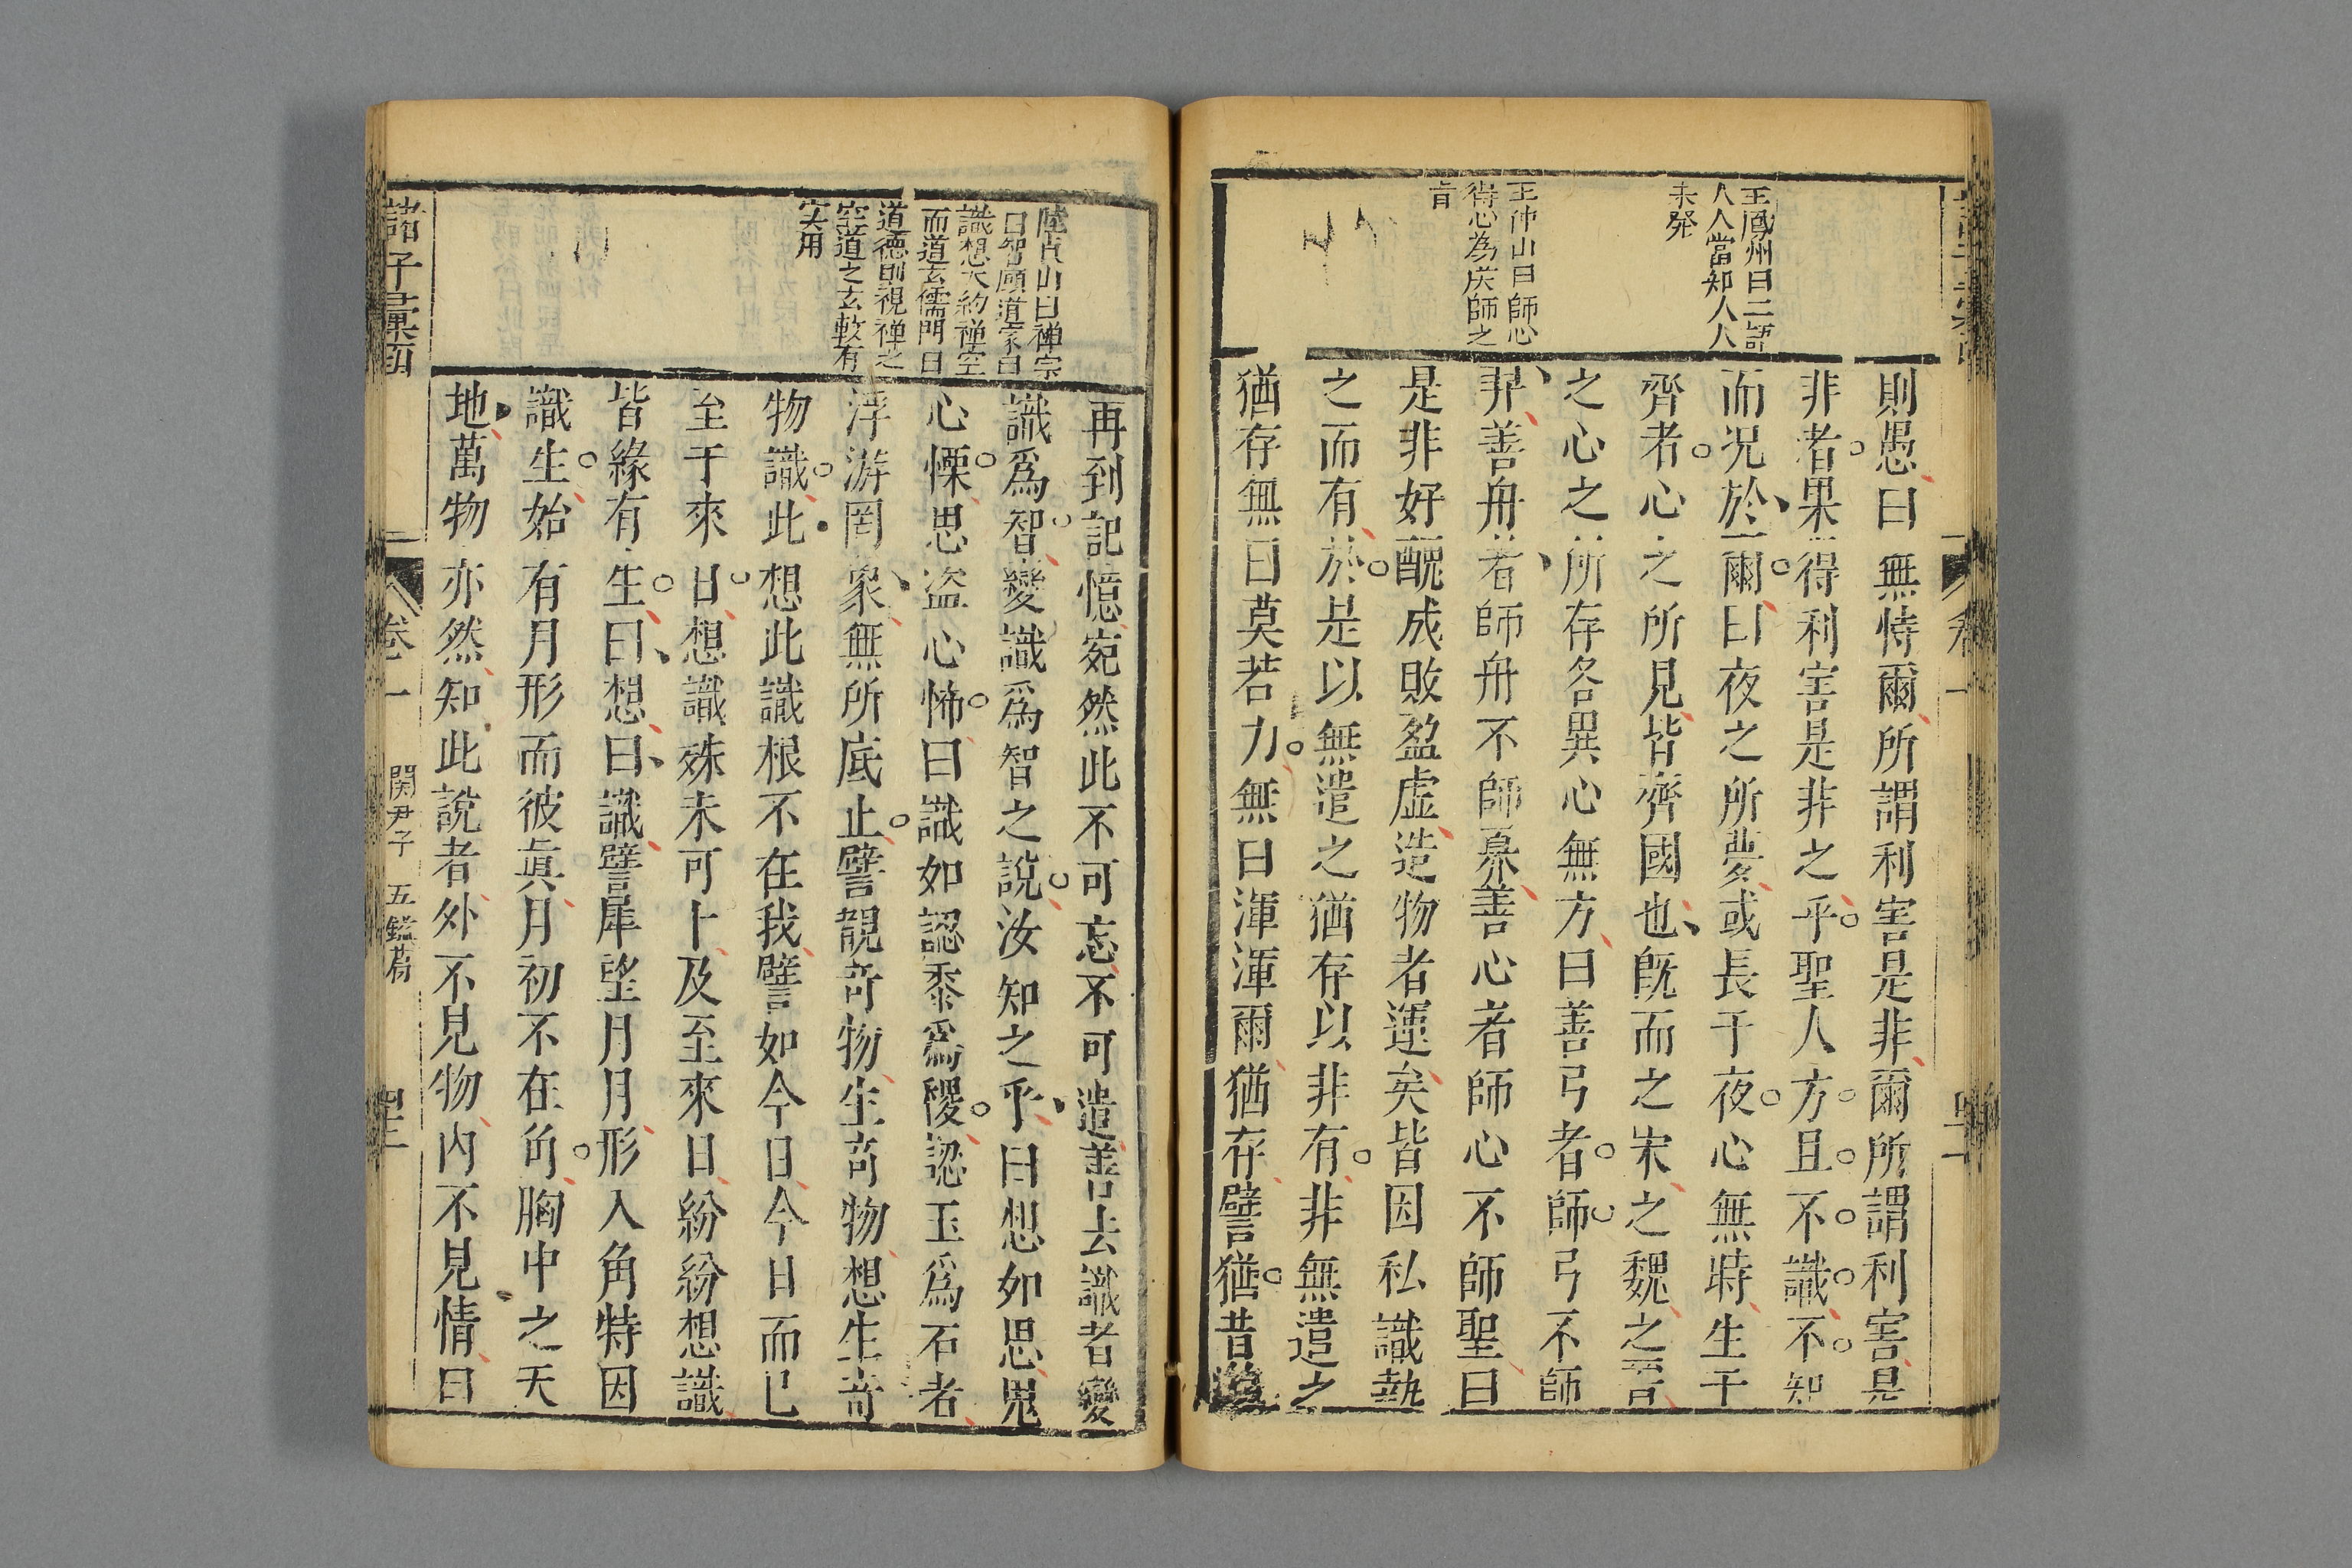 王鳳州曰二語
人人當知人人
未發
王仲山曰師心
得心為庆師之
肯
則愚曰無恃爾所謂利害是非爾所謂利害是
非者果得利害是非之乎聖人方且不識不知
而況於爾曰夜之所夢或長于夜心無時生于
齊者心之所見皆齊國也既而之宋之魏之晉
之心之所存各異心無方曰善弓者師弓不師
羿善舟者師舟不師奡善心者師心不師聖曰
是非好醜成敗盈虛造物者運矣皆因私識執
之而有於是以無遣之猶存以非有非無遣之
猶存無曰莫若力無曰渾渾爾猶存譬猶昔遊
陸貞山曰禅宗
曰智願道家曰
識想大約禅空
而道玄儒門曰
道德則視禅之
空道之玄較有
实用
再到記憶宛然此不可忘不可遣善去識者變
識爲智變識爲智之說汝知之乎曰想如思鬼
心慄思盜心怖曰識如認黍爲稷認玉爲石者
浮游罔象無所底止譬覩奇物生奇物想生奇
物識此想此識根不在我譬如今日今日而已
至于來日想識殊未可卜及至來日紛紛想識
皆緣有生曰想曰識譬犀望月月形入角特因
識生始有月形而彼眞月初不在角胸中之天
地萬物亦然知此說者外不見物內不見情曰
諸子彙函
卷一
関尹子 五鑑篇